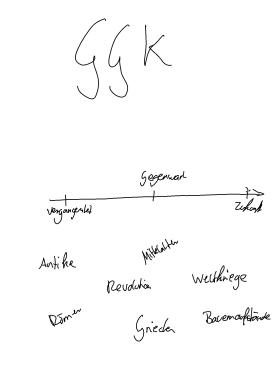 GGK
Gegenwart
Vergangenheit
Zukunft
Mittelalter
Antike
Revolution
Weltkriege
Römer
Griechen
Bauernaufstände